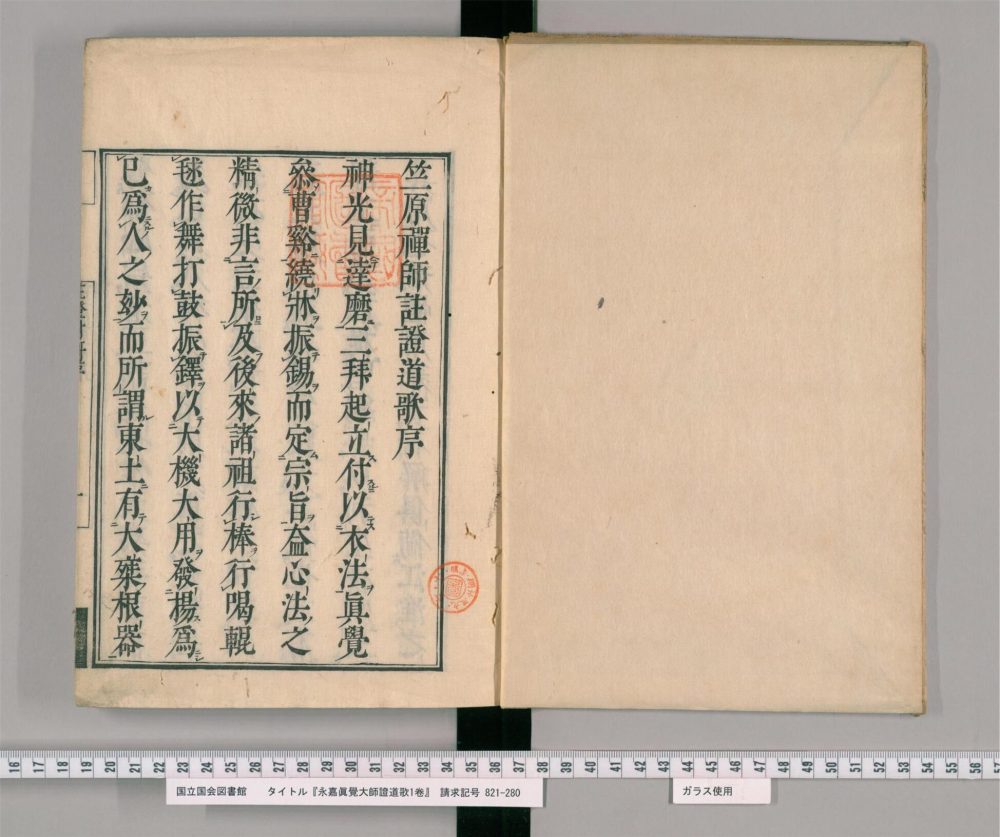 竺原禪師註證道歌序
神光見達磨三拜起立付以衣法眞覺
叅曹谿繞牀振錫而定宗旨葢心法之
精微非言所及後來諸祖行棒行喝輥
毬作舞打鼓振鐸以大機大用發揚爲
巳爲人之妙而所謂東土有大葉根器
国立国会図書館 タイトル『永嘉眞覺大師證道歌1巻』 請求記号 821-280
ガラス使用
16 17 18 19 20 21 22 23 24 25 26 27 28 29 30 31 32 33 34 35 36 37 38 39 40 41 42 43 44 45 46 47 48 49 50 51 52 53 54 55 56 57